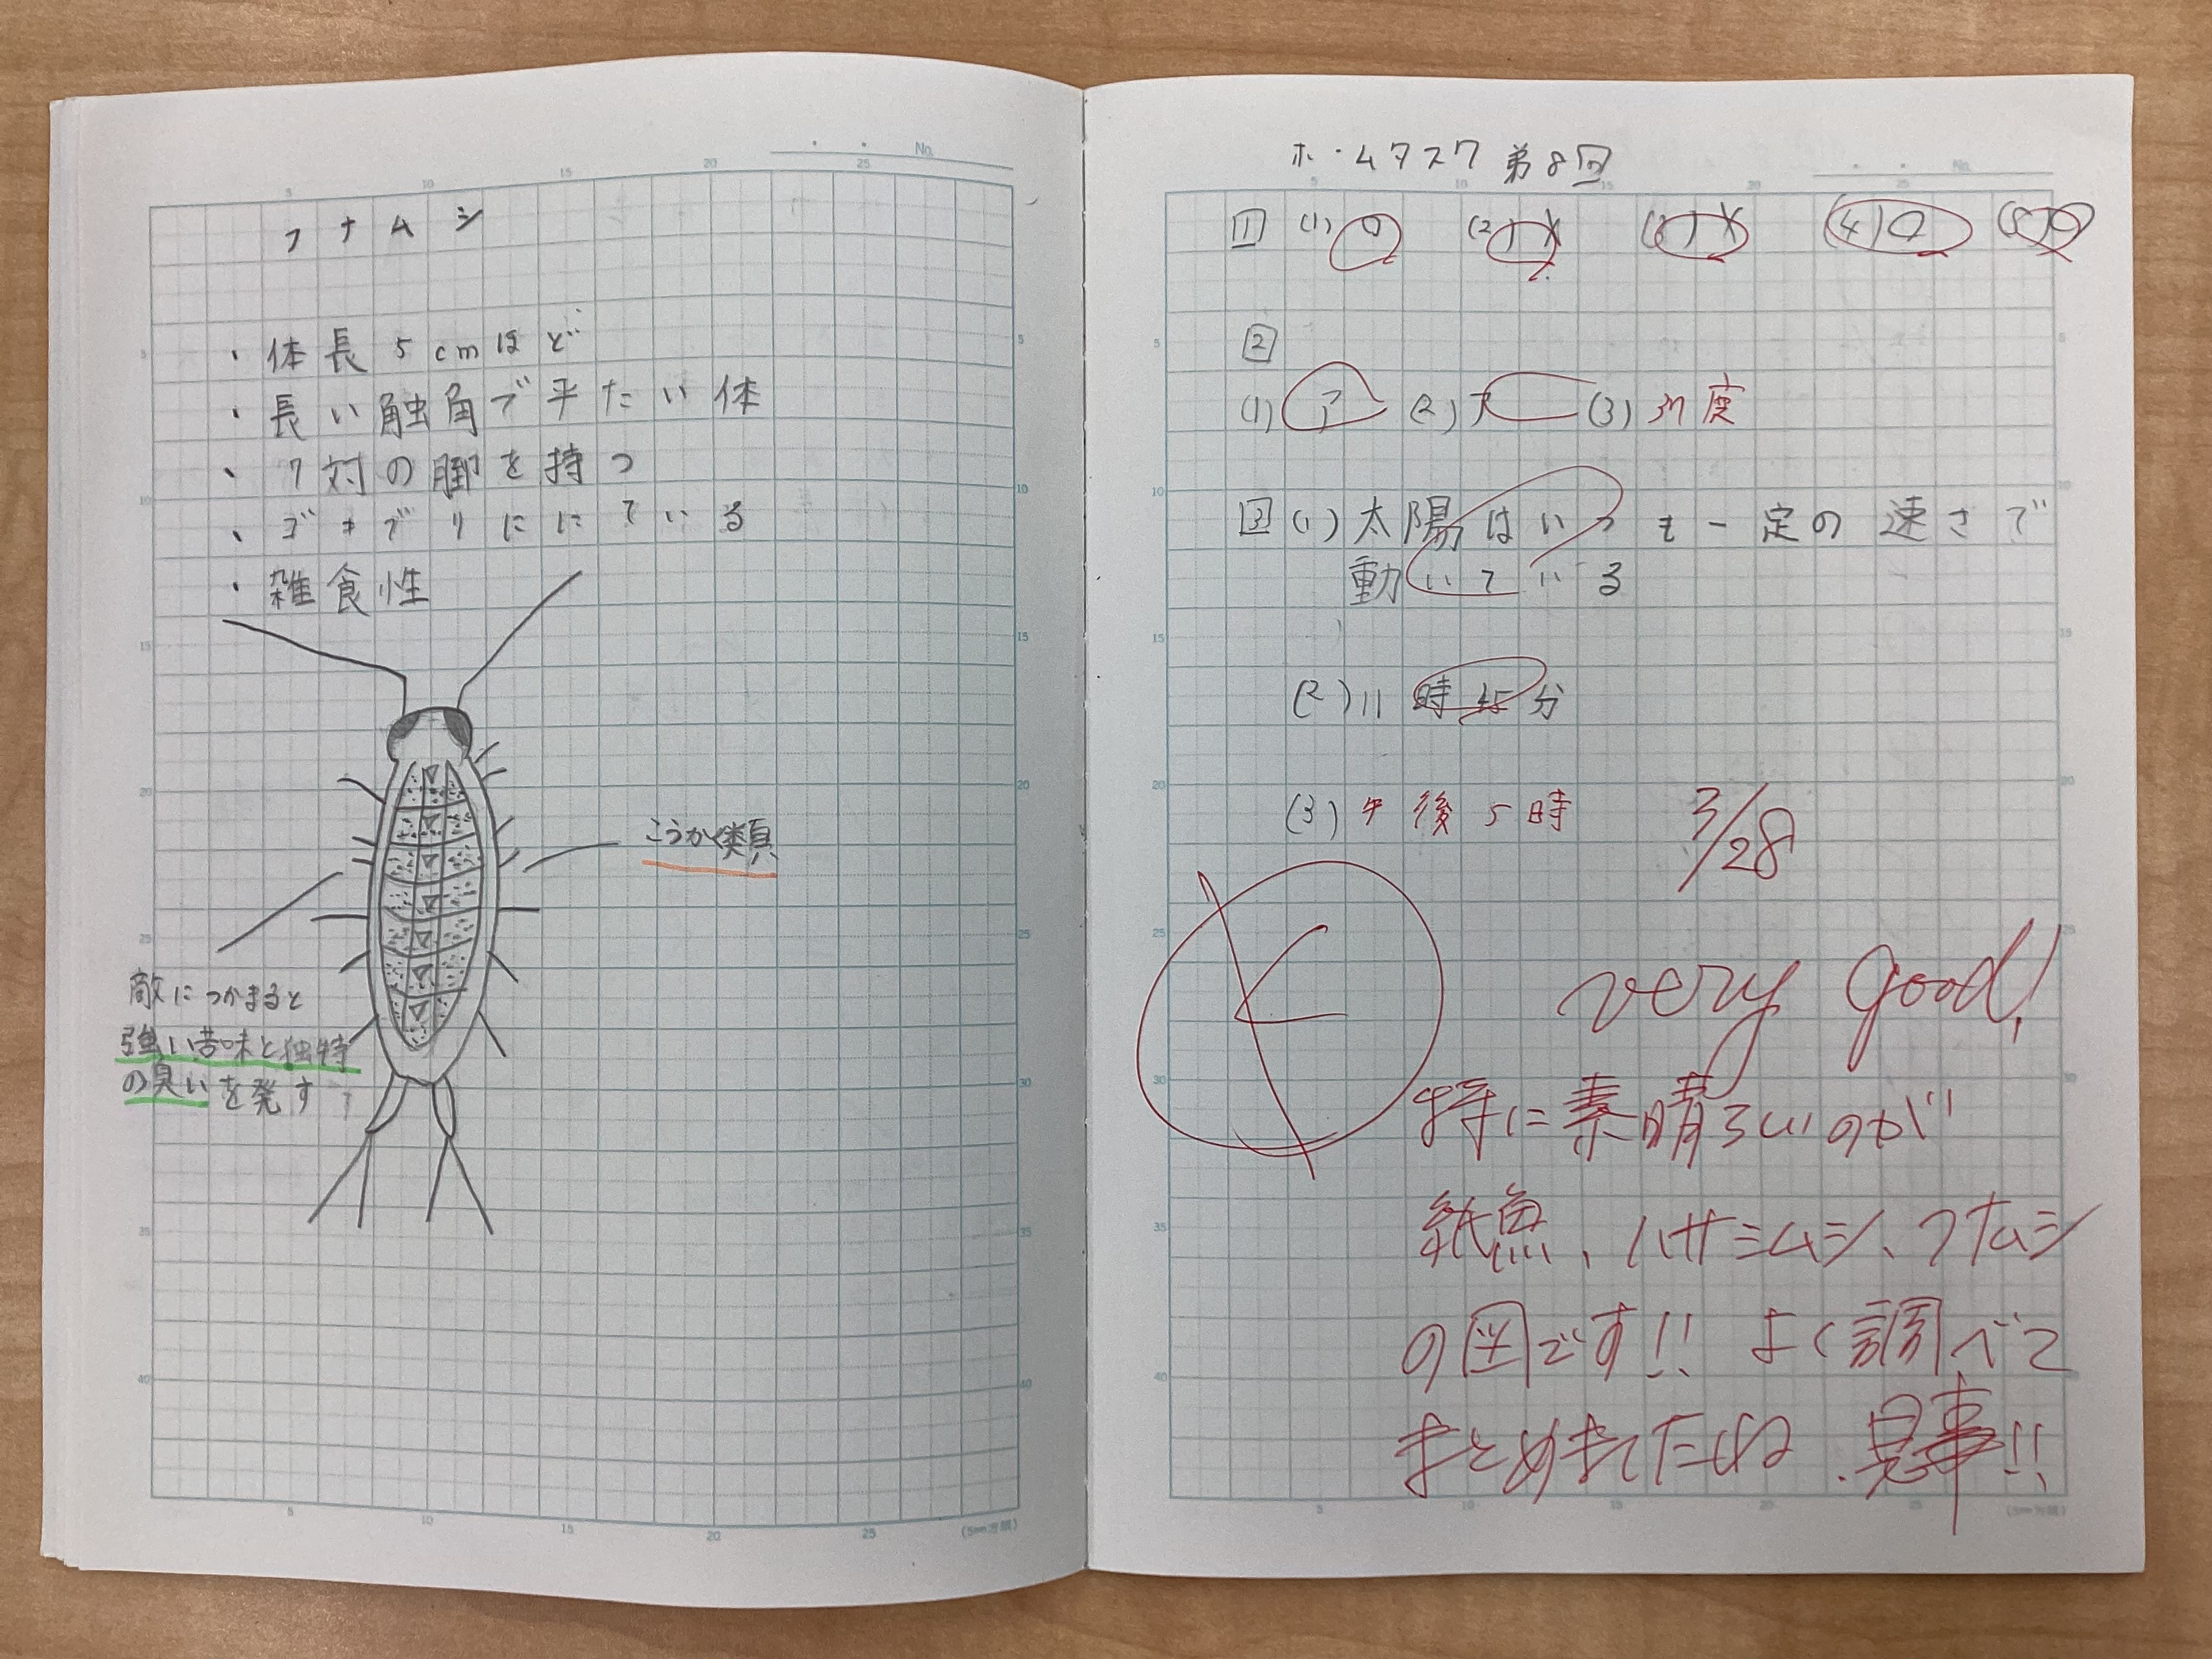 No.
フナムシ
・体長5cmほど
・長い触角で平たい体
・7対の脚を持つ
・ゴキブリににている
・雑食性
こうかく類
敵につかまると
強い苦味と独特
の臭いを発す
ホームタスク 第8回
No.
1 (1) (2) × (3) × (4) ○ (5) ○
2
(1) ア (2) (3)
3 (1) 太陽はいつも一定の速さで
動いている
(2) 11時45分
(3) 午後5時
3/28
very good!
特に素晴らしいのが
紙魚、ハサミムシ、フナムシ
の図です!! よく調べて
まとめましたね.見事!!